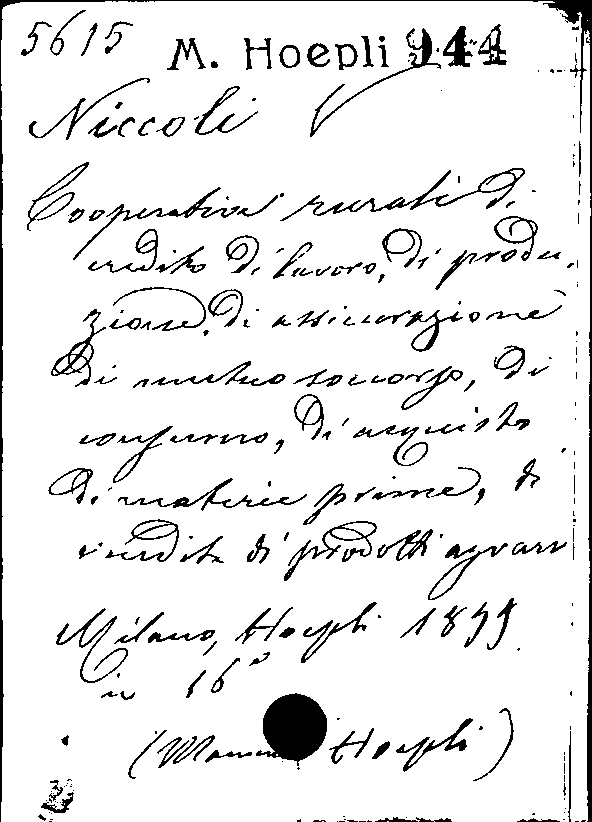 5615 M. Hoepli 944
Niccoli V
Cooperative rurali di
credito di lavoro, di produ-
zione, di assicurazione
di mutuo soccorso, di
consumo, di acquisto
di materie prime, di
vendita di prodotti agrari
Milano, Hoepli 1899
in 16°
( Hoepli)